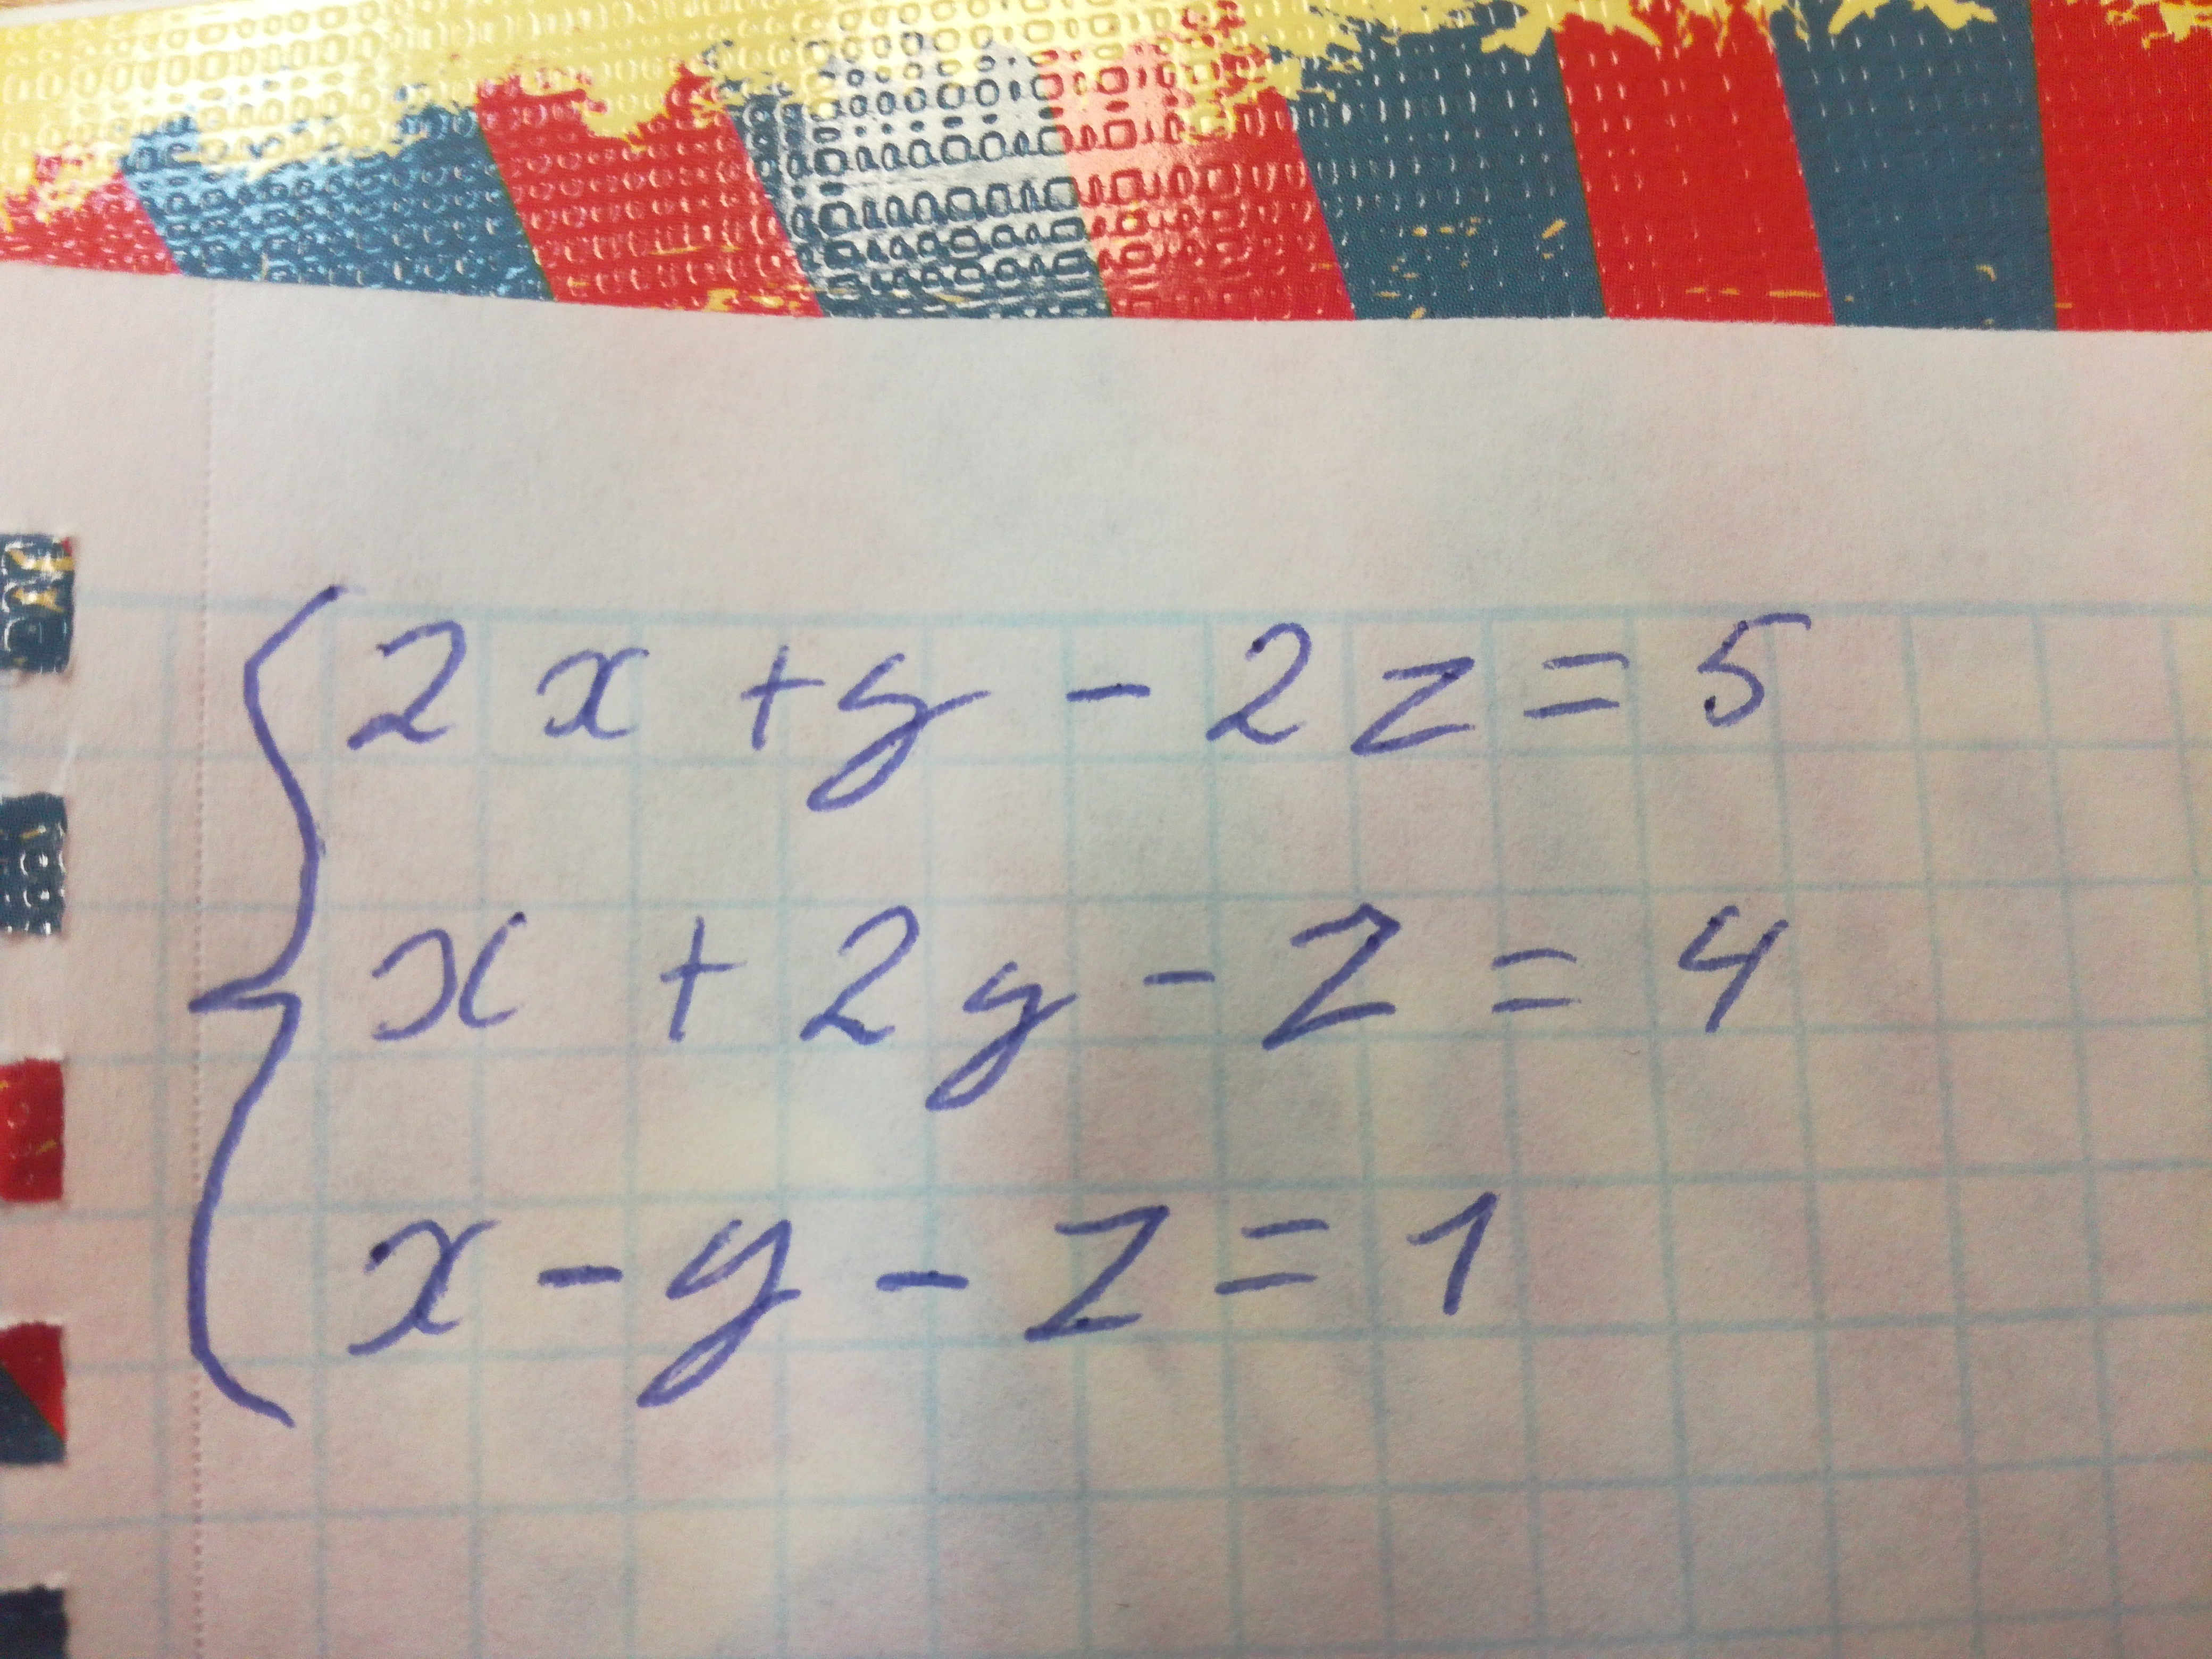 2x + y - 2z = 5
x + 2y - z = 4
x - y - z = 1